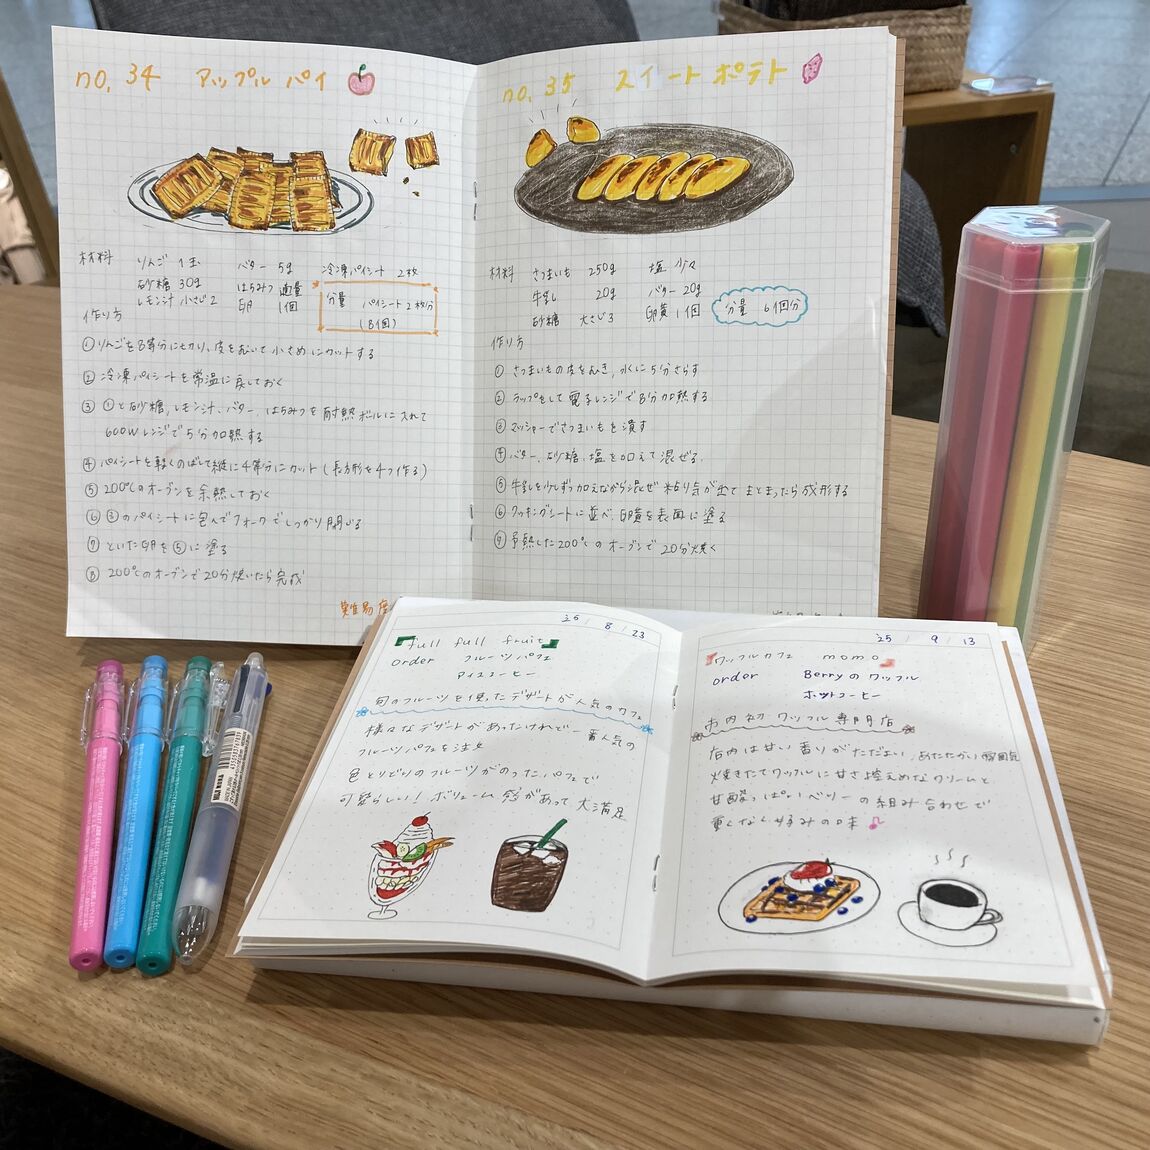 no. 34 アップルパイ
材料 りんご 1玉 バター 5g 冷凍パイシート 2枚
砂糖 30g はちみつ 適量
レモン汁 小さじ2 卵 1個
分量 パイシート2枚分
(8個)
作り方
① りんごを8等分に切り、皮をむいて小さめにカットする
② 冷凍パイシートを常温に戻しておく
③ ①と砂糖、レモン汁、バター、はちみつを耐熱ボールに入れて
600Wレンジで5分加熱する
④ パイシートを軽くのばして縦に4等分にカット(長方形を4つ作る)
⑤ 200℃のオーブンを余熱しておく
⑥ ③のパイシートに包んでフォークでしっかり閉じる
⑦ といた卵を⑤に塗る
⑧ 200℃のオーブンで20分焼いたら完成
難易度
no. 35 スイートポテト
材料 さつまいも 250g 塩 少々
牛乳 20g バター 20g
砂糖 大さじ3 卵黄 1個
分量 6個分
作り方
① さつまいもの皮をむき、水に5分さらす
② ラップをして電子レンジで8分加熱する
③ マッシャーでさつまいもを潰す
④ バター、砂糖、塩を加えて混ぜる。
⑤ 牛乳を少しずつ加えながら混ぜ粘り気が出てまとまったら成形する
⑥ クッキングシートに並べ、卵黄を表面に塗る
⑦ 予熱した200℃のオーブンで20分焼く
'25 / 8 / 23
full full fruit
order フルーツパフェ
アイスコーヒー
旬のフルーツを使ったデザートが人気のカフェ
様々なデザートがあったけれど一番人気の
フルーツパフェを注文
色とりどりのフルーツがのったパフェで
可愛らしい!ボリューム感があって大満足
'25 / 9 / 13
ワッフルカフェ momo
order Berryのワッフル
ホットコーヒー
市内初ワッフル専門店
店内は甘い香りがただよい、あたたかい雰囲気
焼きたてワッフルに甘さ控えめなクリームと
甘酸っぱいベリーの組み合わせで
重くなく好みの味